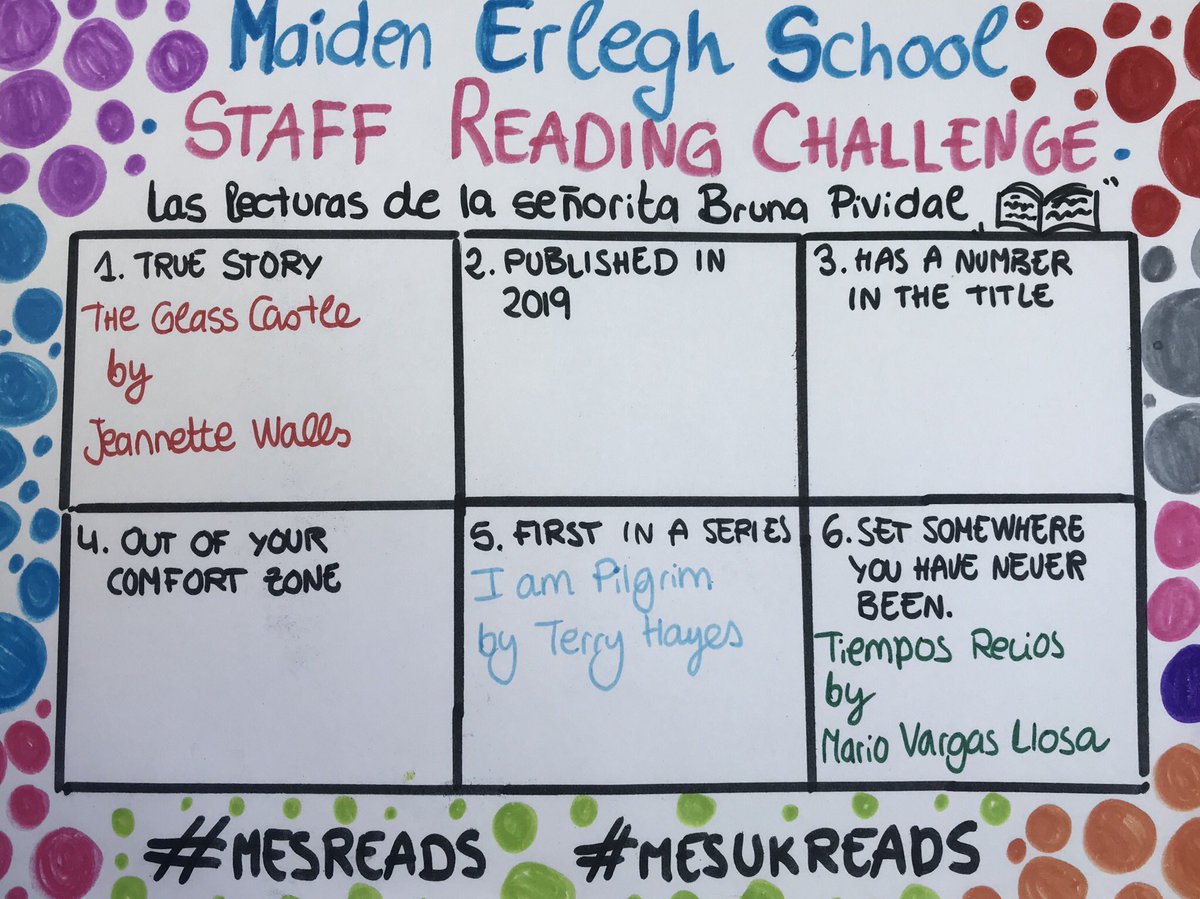 Maiden Erlegh School
STAFF READING CHALLENGE
Las lecturas de la señorita Bruna Pividal
1. TRUE STORY
THE Glass Castle
by
Jeannette Walls
2. PUBLISHED IN
2019
3. HAS A NUMBER
IN THE TITLE
4. OUT OF YOUR
COMFORT ZONE
5. FIRST IN A SERIES
I am Pilgrim
by Terry Hayes
6. SET SOMEWHERE
YOU HAVE NEVER
BEEN.
Tiempos Recios
by
Mario Vargas Llosa
#MESREADS #MESUKREADS